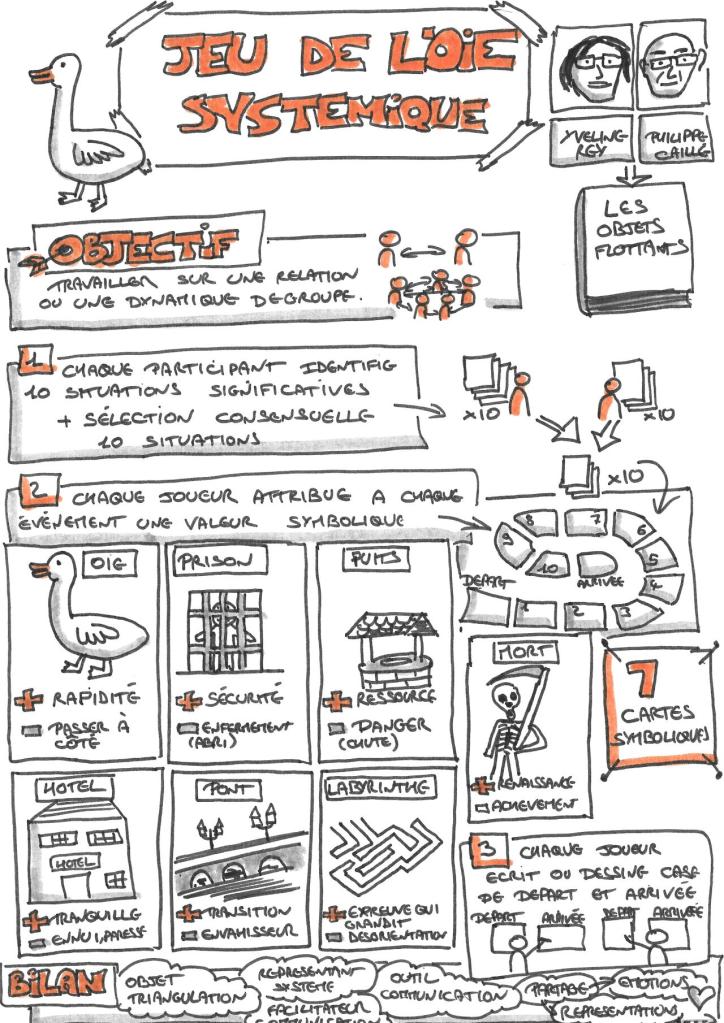 JEU DE L'OIE
SYSTEMIQUE
YVELINE
REY
PHILIPPE
CAILLÉ
LES
OBJETS
FLOTTANTS
OBJECTIF
TRAVAILLER SUR UNE RELATION
OU UNE DYNAMIQUE DE GROUPE.
1
CHAQUE PARTICIPANT IDENTIFIE
10 SITUATIONS SIGNIFICATIVES
+ SÉLECTION CONSENSUELLE
10 SITUATIONS
x10
x10
x10
2
CHAQUE JOUEUR ATTRIBUE A CHAQUE
ÉVÉNEMENT UNE VALEUR SYMBOLIQUE
8
7
6
9
10
5
DEPART
ARRIVÉE
4
1
2
3
OIE
+ RAPIDITÉ
- PASSER À
CÔTÉ
PRISON
+ SÉCURITÉ
- ENFERMEMENT
(ABRI)
PUITS
+ RESSOURCE
- DANGER
(CHUTE)
MORT
+ RENAISSANCE
- ACHEVEMENT
7
CARTES
SYMBOLIQUES
HOTEL
HOTEL
+ TRANQUILLE
- ENNUI, PARESSE
PONT
+ TRANSITION
- ENVAHISSEUR
LABYRINTHE
+ EXPREUVE QUI
GRANDIT
- DESORIENTATION
3
CHAQUE JOUEUR
ECRIT OU DESSINE CASE
DE DEPART ET ARRIVÉE
DEPART ARRIVÉE
DEPART ARRIVÉE
BILAN
OBJET
TRIANGULATION
REPRESENTANT
SYSTEME
FACILITATEUR
COMMUNICATION
OUTIL
COMMUNICATION
PARTAGE
EMOTIONS
REPRESENTATIONS